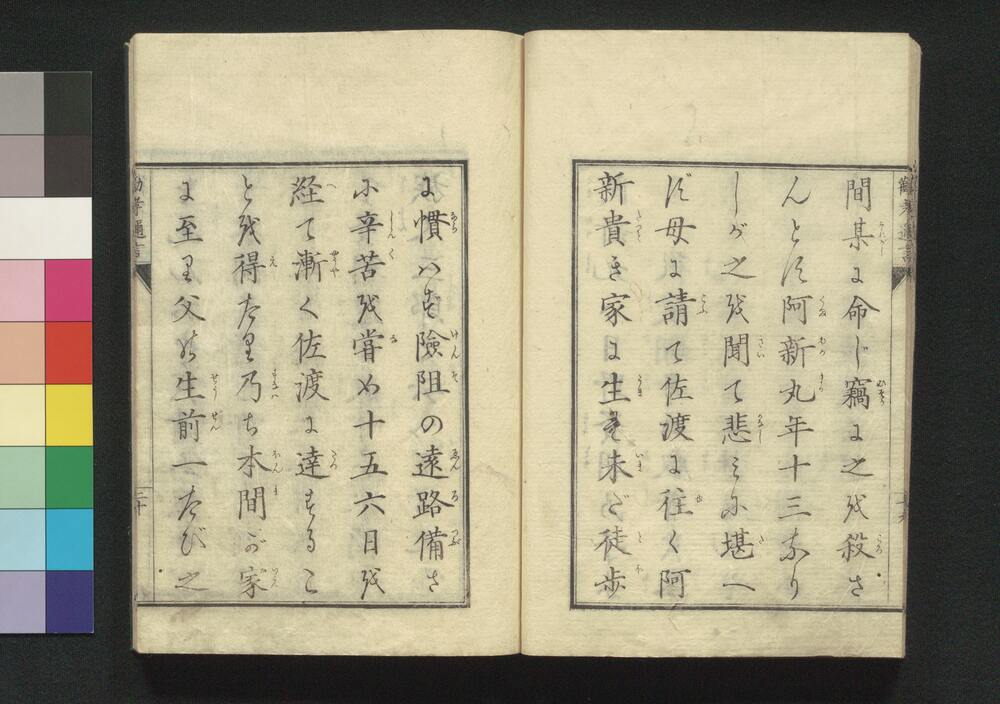 間某に命じ竊に之を殺さ
んとす阿新丸年十三なり
しが之を聞て悲みに堪へ
ず母に請て佐渡に往く阿
新貴き家に生れ未だ徒歩
に慣はず險阻の遠路備さ
に辛苦を嘗め十五六日を
経て漸く佐渡に達するこ
とを得たり乃ち本間が家
に至り父の生前一たび之
勸孝邇言
二十